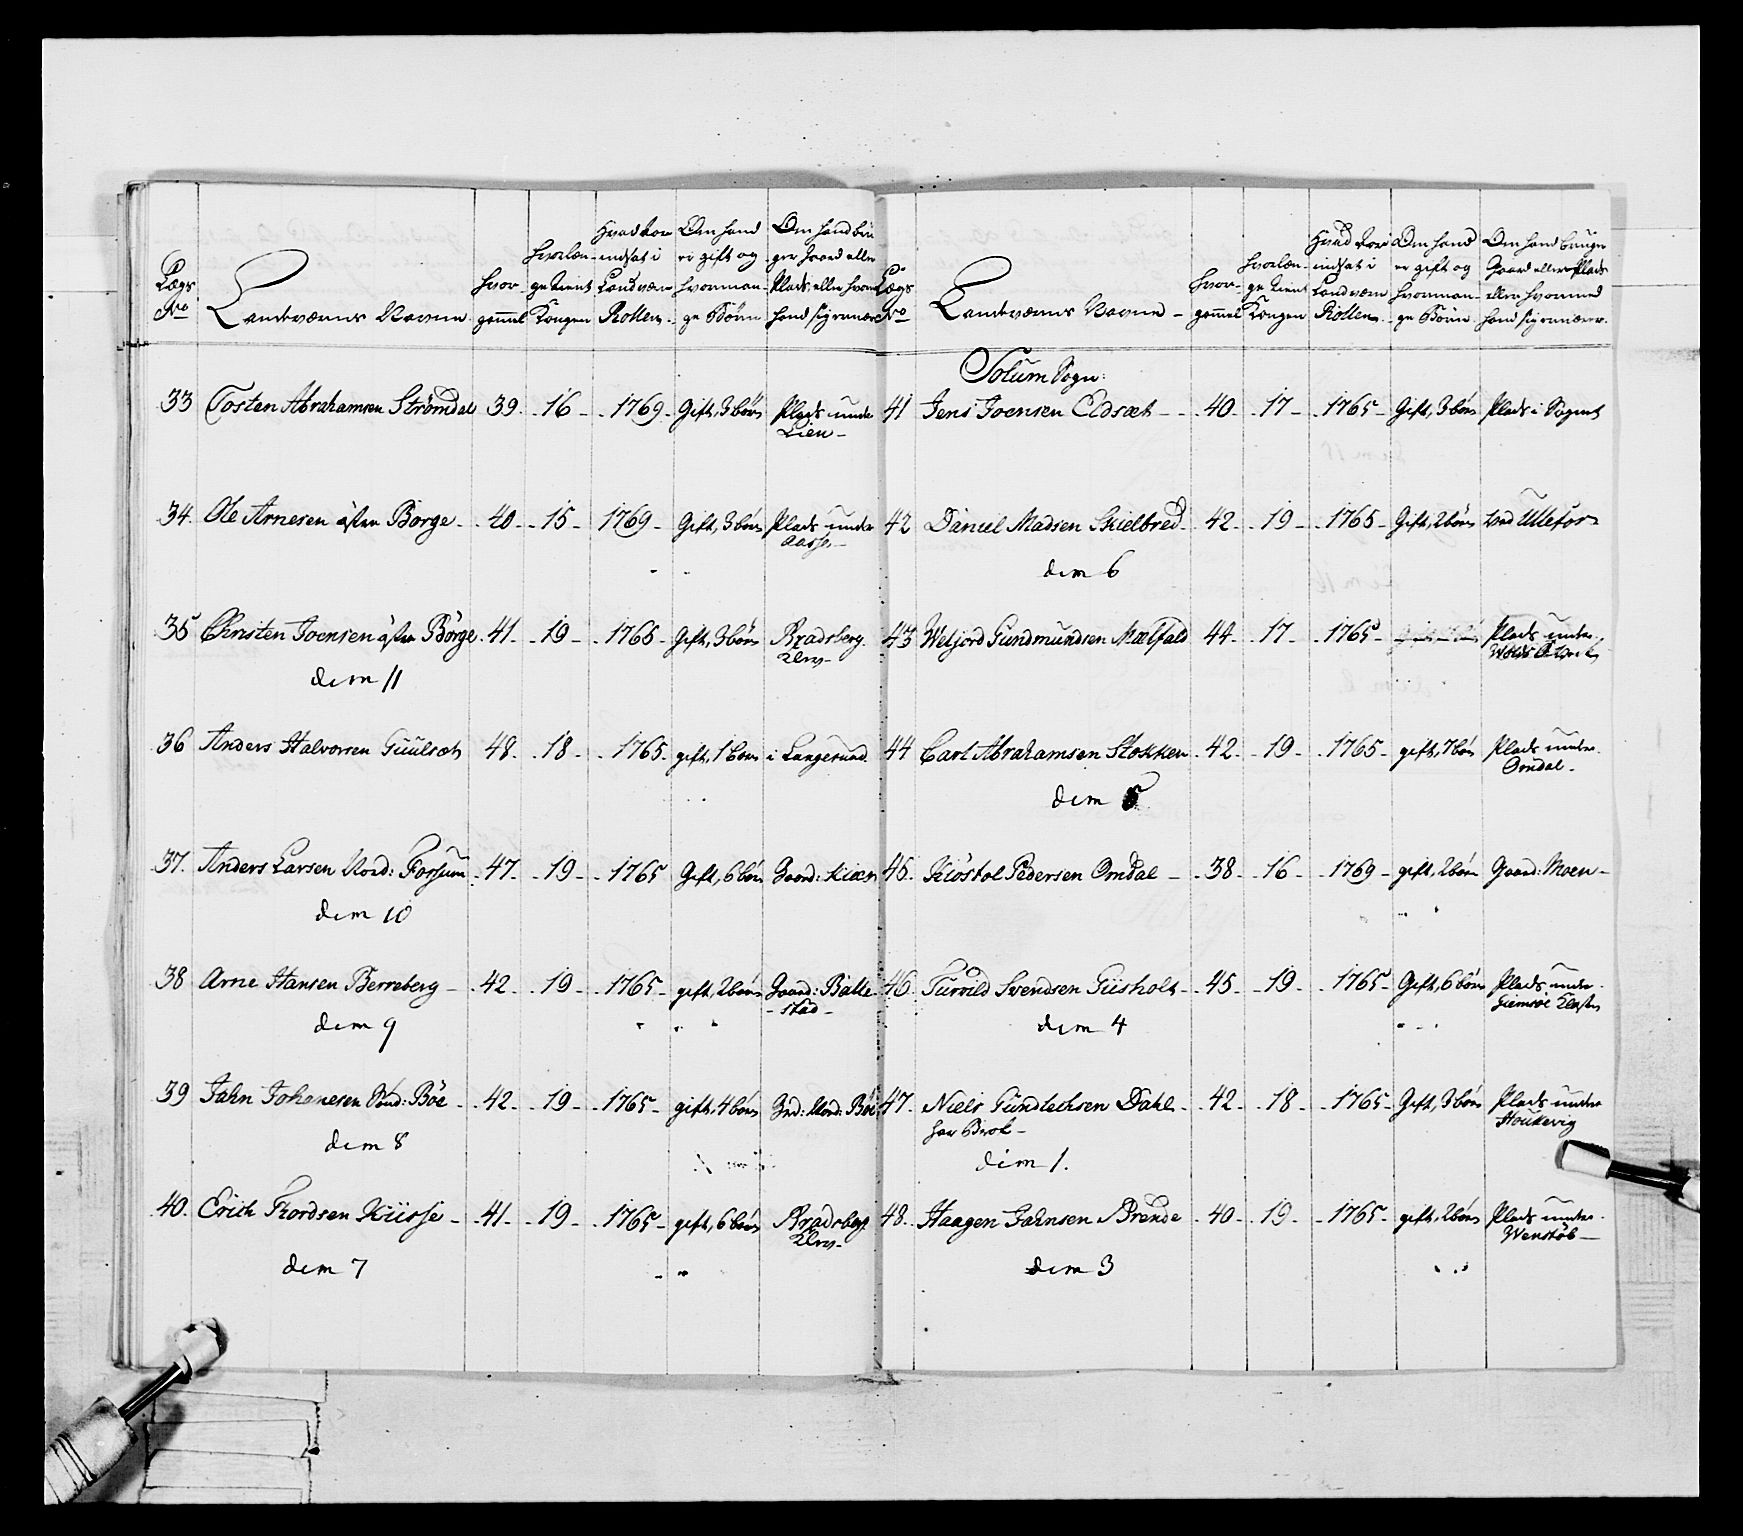 Lægs No
Landeværns Navne
hvor gammel
hvorlænge tient Kongen
Hvad Aar indsat i Landværn Rollen
Om hand er gift og hvor mange Börn
Om hand bruger Gaard eller Plads, eller hvormed hand sig ernærer
33 Tosten Abrahamsen Strömdal 39. 16 - 1769. Gift, 3 börn Plads under
Lien -
34. Ole Arnesen östre Borge - 40 - 15 - 1769 - Gift, 3 börn Plads under
Aasse -
35 Christen Joensen östre Börge 41 - 19 - 1765 - Gift, 3 börn Bradsberg
Kley -
dim 11
36 Anders Halvorsen Guulset 48. 18 - 1765. gift, 1 barn i Langesund.
37. Anders Larsen Nord: Forsum 47. 19 - 1765 Gift, 6 börn Gaard:
dim 10
38 Arne Hansen Berreberg - 42 - 19 - 1765 - gift, 2 börn Gaard: Balle
- stad -
dim 9
39 Jahn Johanesen Nord: Böe - 42 - 19 - 1765 - gift, 4 börn Grd: Nord: Böe
dim 8
40. Erich Thordsen Kiisse - 41 - 19 - 1765 - gift, 6 börn Bradsberg
Kley -
dim 7
Lægs No
Landeværns Navne -
hvor gammel
hvorlænge tient Kongen
Hvad Aar indsat i Landværn Rollen
Om hand er gift og hvor mange Börn
Om hand bruger Gaard eller Plads eller hvormed hand sig ernærer.
Solum Sogn:
41 Jens Joensen Eldsæt - 40 - 17 - 1765 - Gift, 3 börn Plads i Sognet
42 Daniel Madsen Skielbred - 42 - 19 - 1765 - Gift, 2 börn ved Ullefos
dim 6
43 Weljord Gundmundsen Mælfald 44 - 17 - 1765 Plads under
44 Carl Abrahamsen Stokken 42 - 19 - 1765 - gift, 7 börn Plads under
Omdal -
dim 5
45. Kiöstol Pedersen Omdal - 38 - 16 - 1769 - gift, 2 börn Gaard: Moen -
46. Turvild Svendsen Giisholt - 45 - 19 - 1765 - Gift, 6 börn Plads under
Giemsöe Kloster
dim 4
47. Niels Gundlechsen Dahl - 42 - 18 - 1765 - Gift, 3 börn Plads under
Houkevig
har Brok -
dim 1.
48. Haagen Jahnsen Brende 40 - 19 - 1765 - gift, 2 börn Plads under
Wenstöb -
dim 3